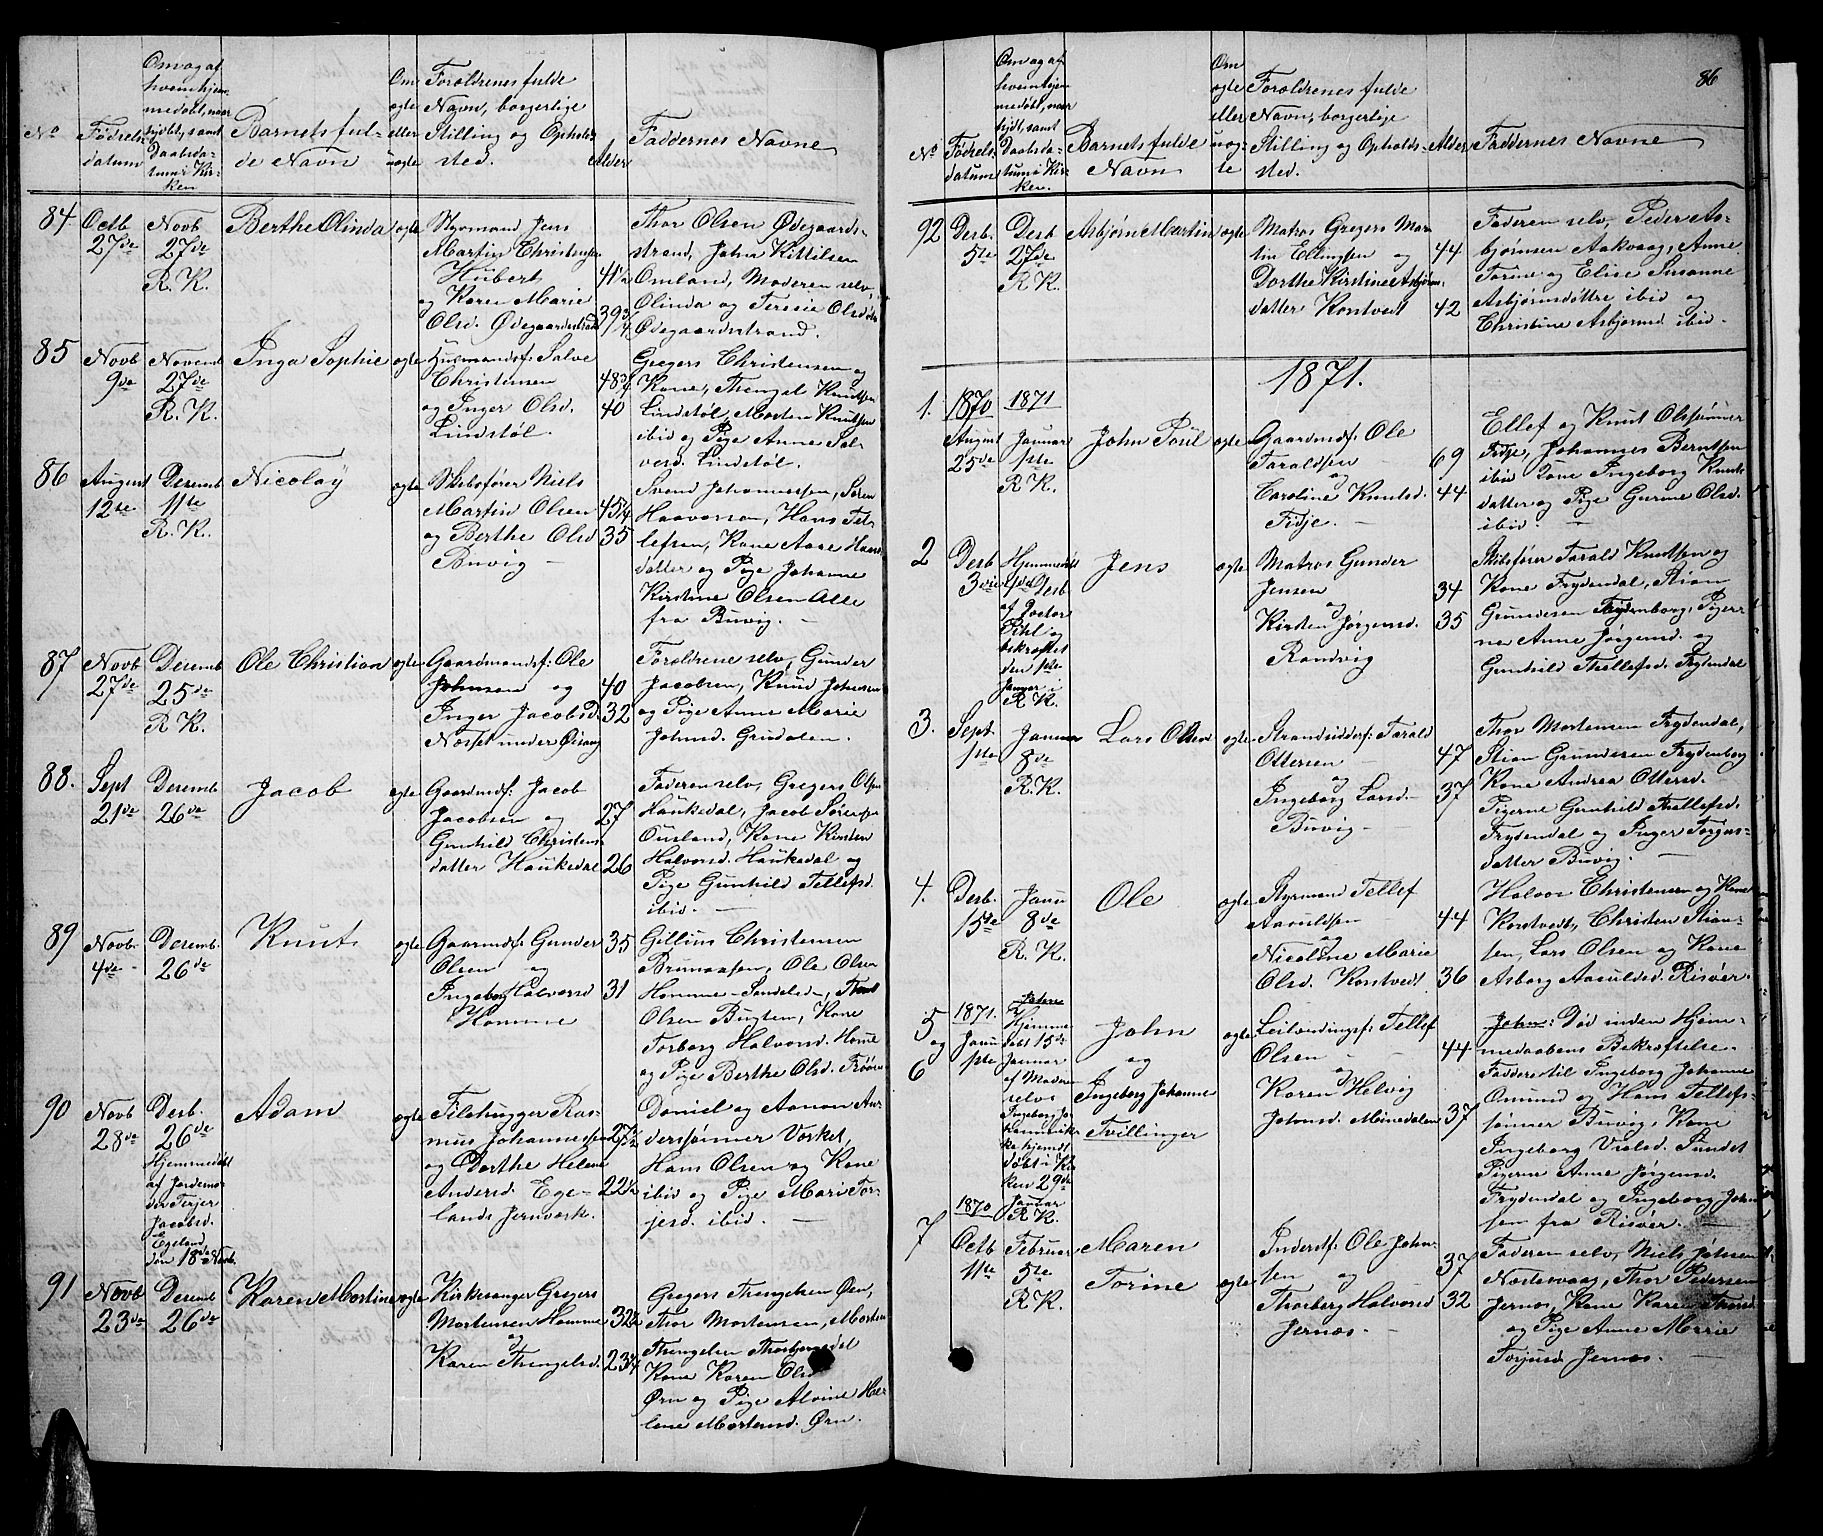 No
Fødsels
datum
Om og af
hvem hjem
medøbt, naar
Daabsda-
tum i Kir-
ken
Barnets ful-
de Navn
Om
ægte
eller
uægte
Forældrenes fulde
Navn, borgerlige
Stilling og Opholds
sted.
Alder
Faddernes Navne
84
Octb
27de
Novb
27de
R. K.
Berthe Olinda
ægte
Styrmand Jens
Martin Christensen
Hubert
og Karen Marie
Olsd. Ødegaardsstrand
41½
39¾
Thor Olsen Ødegaards-
strand, John Kittilsen
Omland, Moderen selv,
Olinda og Teresie Olsdøtr
Ødegaardsstrand.
85
Novb
9de
Novemb
27de
R. K.
Inga Sophie
ægte
Husmandsf: Salve
Christensen
og Inger Olsd.
Lindstøl
48¾
40
Gregers Christensen og
Kone, Thengel Knutsen
Lindstøl, Morten Knutsen
ibid og Pige Anne Sal-
vesd. Lindstøl.
86
August
12te
Decemb
11te
R. K.
Nicolay
ægte
Skibsfører Niels
Martin Olsen
og Berthe Olsd
Buvig
45¼
35
Svend Johannessen, Søren
Haavorsen, Hans Tel-
lefsen, Kone Aase Hans
datter og Pige Johanne
Kirstine Olsen Alle
fra Buvig.
87
Novb
27de
Decemb
25de
R K.
Ole Christian
ægte
Gaardmandsf: Ole
Johnsen og
Inger Jacobsd
40
32
Forældrene selv, Gunder
Jacobsen, Knud Johnsen
og Pige Anne Marie
Johnsd. Grudalen.
88.
Sept
21de
Decemb
26de
Jacob
ægte
Gaardmdf: Jacob
Jacobsen og
Gunhild Christens
datter Haukedal
27
26
Faderen selv, Gregers Olsen
Haukedal, Jacob Sørensen
Ousland, Kone Kirsten
Halvorsd. Haukedal og
Pige Gunhild Tellefsd.
ibid.
89
Novb
4de
Decemb.
26de
Knut
ægte
Gaarmdsf: Gunder
Olsen og
Ingeborg Halvorsd
Homme
35
31
Gillius Christensen
Brunaasen, Ole Olsen
Homme-Sendelsd,
Olsen Bugten, Kone
Torborg Halvorsd. Home
og Pige Berthe Olsd.
90
Novb
28de
Decb.
26de
Hjemmedøbt
af Jordemo-
der Terjer
Jacobsd.
Egeland
den 18de Novb.
Adam
ægte
Filehugger Ras-
mus Johannessen
og Dorthe Helene
Andersd. Ege-
lands Jernværk.
27½
22½
Daniel og Aanon An-
derssønner Værket,
Hans Olsen og Kone
ibid og Pige Mari Tor-
jesd. ibid.
91
Novb
23de
Decemb
26de
Karen Mortine
ægte
Kirkesanger Gregers
Mortensen Homme
og
Karen Thengelsd.
32½
23¾
Gregers Thengelsen Ørn,
Thor Mortensen, Morten
Thengelsen
Kone Karen Olsd
Ørn og Pige Alvine He-
lene Mortensd. Ørn.
86
No
Fødsels
datum
Om og af
hvem hjem
medøbt, naar
døbt, samt
Daabsda-
tum i Kir-
ken.
Barnets fulde
Navn
Om
ægte
eller
uæg-
te
Forældrenes fulde
Navn, borgerlige
Stilling og Opholds-
sted.
Alder
Faddernes Navne
92
Decb.
5te
Decb
27de
R. K.
Asbjørn Martin
ægte
Matros Gregers Mar
tin Ellingsen og
Dorthe Kirstine Asbjørns
datter Korstvedt
44
42
Faderen selv, Peder As-
bjørnsen Aakvaag, Anne
Torine og Elise Susanne
Asbjørnsdøttre ibid og
Christine Asbjørnsd. ibid.
1871.
1.
1870
August
25de
1871
Januar
1ste
R K.
John Poul
ægte
Gaardmdf: Ole
Taraldsen
og
Caroline Knutsd.
Fidje.
69
44
Ellef og Knut Olssønner
Fidje, Johannes Berntsen
ibid Kone Ingeborg Knuts
datter og Pige Gurine Olsd.
ibid.
2
Decb
3die
Hjemmedøbt
4de Decb
af Doctor
Pihl og
bekræftet
den 1ste
Januar i
R K.
Jens
ægte
Matros Gunder
Jensen
og
Kirsten Jørgensd.
Randvig
34
35
Skibsfører Tarald Knutsen og
Kone Frydendal, Stian
Gundersen Frydenborg, Piger-
ne Anne Jørgensd. og
Gunhild Thellefsd. Frydendal
3.
Sept
1ste
Januar
8de
R. K.
Lars Otten
ægte
Strandsidderf: Tarald
Ottersen
og
Ingeborg Larsd.
Buvig
47
37
Thor Mortensen Frydendal,
Stian Gundersen Frydenborg
Kone Andrea Ottersd.
Pigerne Gunhild Thellefsd.
Frydendal og Inger Torgus-
datter Buvig.
4.
Decb.
15de
Janu
8de
R. K.
Ole
ægte
Styrmand Tellef
Aasuldsen
og
Nicoline Marie
Olsd. Korstvedt
44
36
Halvor Christensen og Kone
Korstvedt, Christen Stian-
sen, Lars Olsen og Kone
Asborg Aasuldsd. Risøer
5
og
6
1871.
Janu
1ste
Hjemme
døbt 15de
Januar
af Moderen
selv
Ingeborg Jo-
hanne
døbt i Kir
ken 29de
Januar
R K.
John
og
Ingeborg Johanne
Tvillinger
ægte
Leilændingsf: Tellef
Olsen
og
Karen Helvig
Johnsd. Moinedalen
44
37
John: Død inden Hjem-
medaabens Bekræftelse.
Faddere til Ingeborg Johanne
Omund og Hans Tellefs-
sønner Buvig, Kone
Ingeborg
Pigerne Anne Jørgensd.
Frydendal og Ingeborg John
sen fra Risøer.
7
1870
Octb
11te
Februar
5te
R K.
Maren
Torine
ægte
Inderstf: Ole John-
sen og
Thorborg Halvorsd
Jernæs.
37
32
Faderen selv, Niels Johnsen
Næstevaag, Thor Pedersen
Jernæs, Kone Karen
og Pige Anne Marie
Torjusd Jernæs.